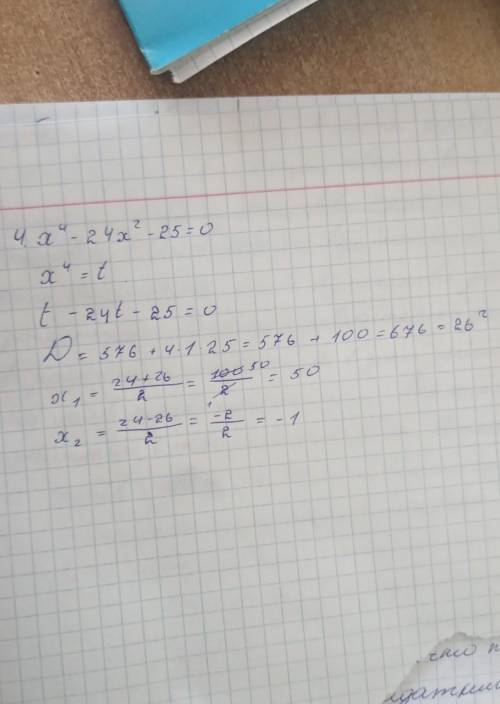 4. x⁴ - 24x² - 25 = 0
x⁴ = t
t - 24t - 25 = 0
D = 576 + 4·1·25 = 576 + 100 = 676 = 26²
x₁ = (24+26)/2 = 100/2 50 = 50
x₂ = (24-26)/2 = -2/2 = -1